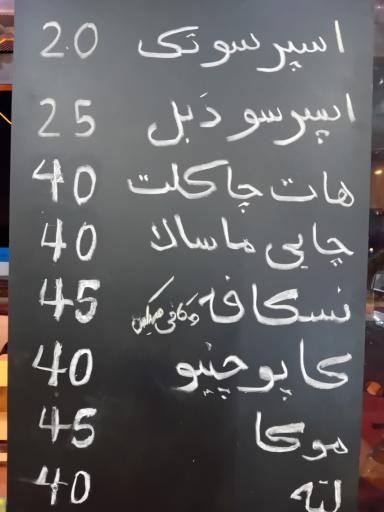 اسپرسو تک 2.0
اسپرسو دَبل 25
هات چاکلت 40
چایی ماسالا 40
نسکافه و کافی میکس 45
کاپوچینو 40
موکا 45
لته 40